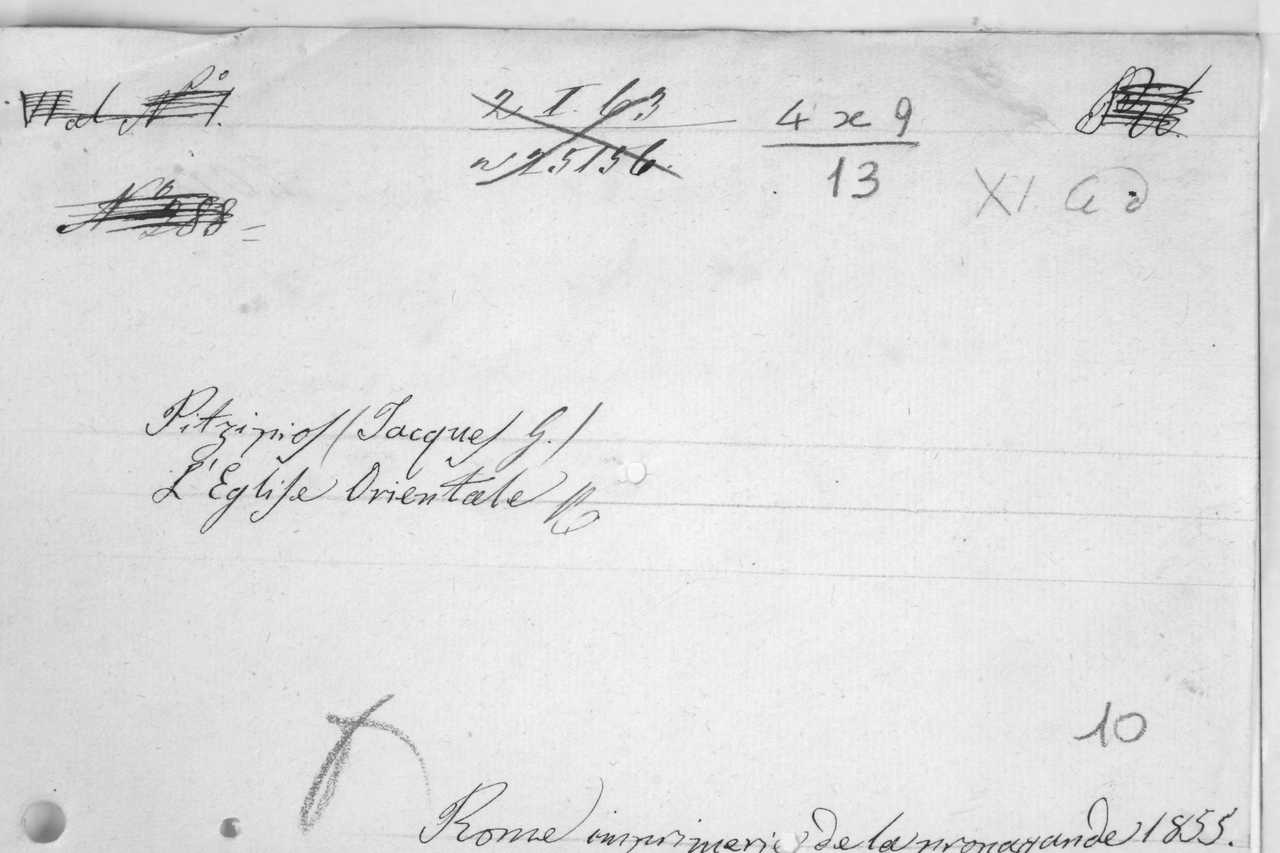 N° 288
2 I. 63
25156
4 x 9
13
XI
Pitzipios (Jacques G.)
L'Eglise Orientale
10
Rome imprimerie de la propagande 1855.